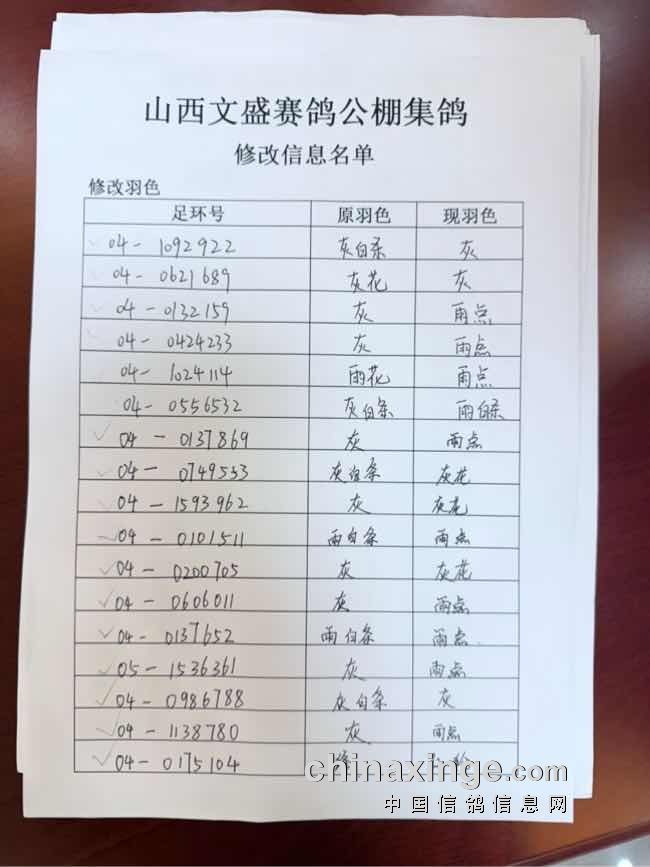 山西文盛赛鸽公棚集鸽
修改信息名单
修改羽色
足环号 原羽色 现羽色
04- 1092922 灰白条 灰
04- 0621689 灰花 灰
04- 0132159 灰 雨点
04- 0424233 灰 雨点
04- 1024114 雨花 雨点
04- 0556532 灰白条 雨白条
04- 0137869 灰 雨点
04- 0749553 灰白条 灰花
04- 1593962 灰 灰花
04- 0101511 雨白条 雨点
04- 0200705 灰 灰花
04- 0606011 灰 雨点
04- 0137652 雨白条 雨点
05- 1536361 灰 雨点
04- 0986788 灰白条 灰
04- 1138780 灰 雨点
04- 0175104
chinaxinge.com
中国信鸽信息网